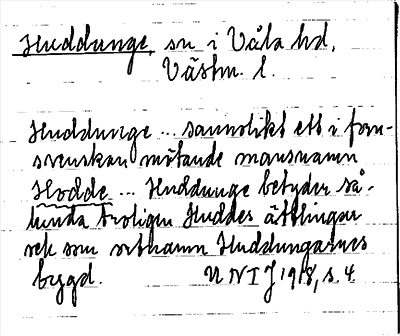 Huddunge, sn i Våla hd,
Västm. l.
Huddunge ... sannolikt ett i forn-
svenskan mötande mansnamn
Hodde ... Huddunge betyder så-
lunda troligen Huddes ättlingar
och som ortnamn Huddungarnes
bygd. UNTJ 1918, s. 4